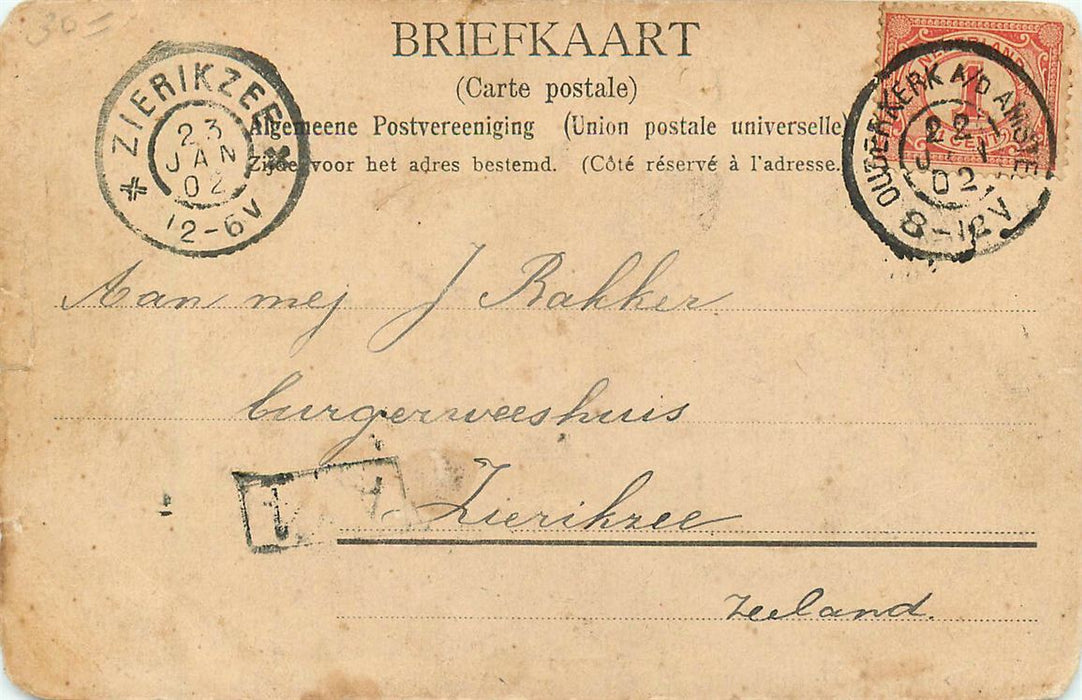 30-
BRIEFKAART
(Carte postale)
Algemeene Postvereeniging (Union postale universelle)
Zijde voor het adres bestemd. (Côté réservé à l'adresse.
ZIERIKZEE
23
JAN
02
12-6V
NEDERLAND
1
CENT
OUDERKERK A/D AMSTEL
22
JAN
02
8-12V
Aan mej J Bakker
burgerweeshuis
Zierikzee
Zeeland.